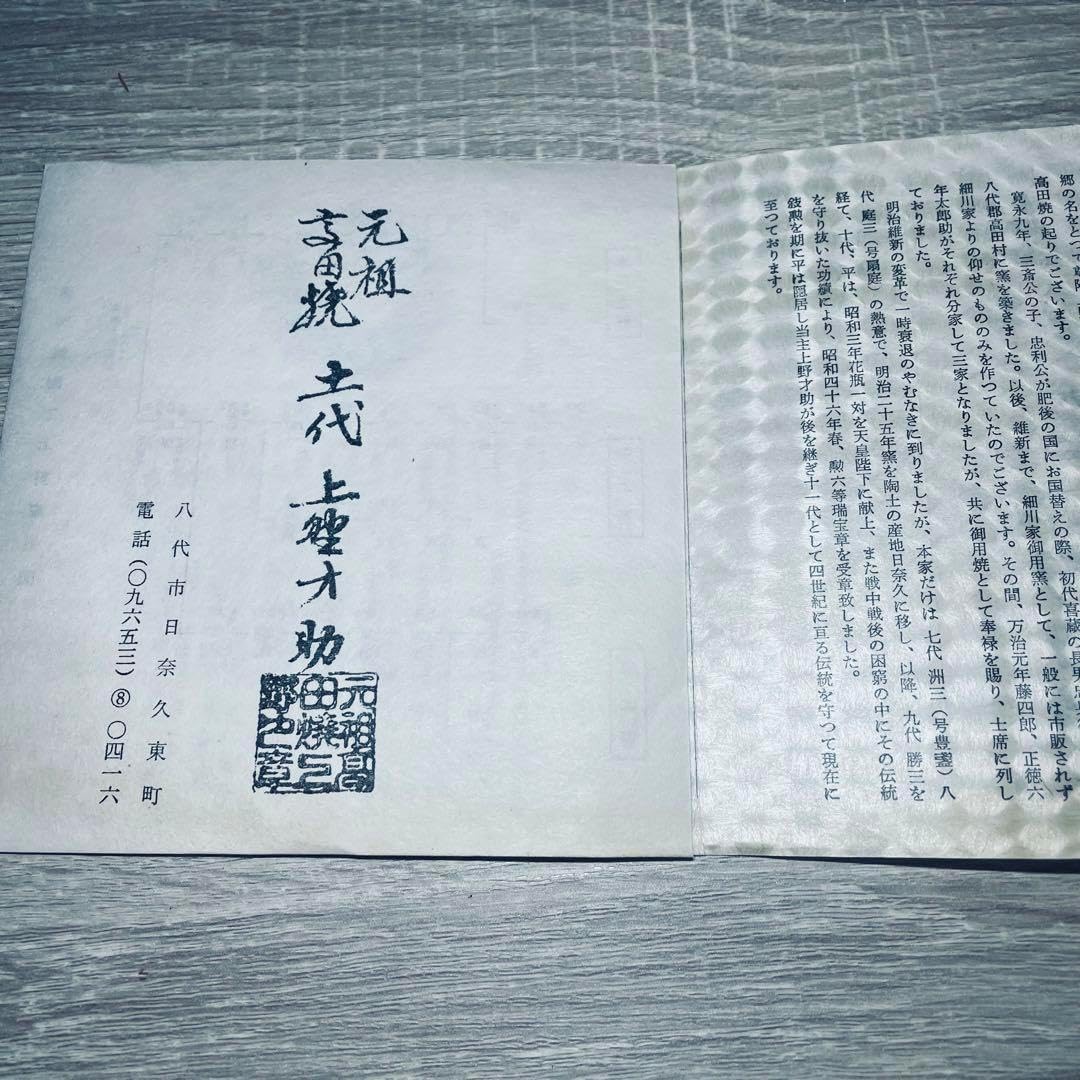 郷の名をとつて
高田焼の起りでございます。
寛永九年、三斎公の子、忠利公が肥後の国にお国替えの際、初代喜蔵の長男
八代郡高田村に窯を築きました。以後、維新まで、細川家御用窯として、一般には市販されず
細川家よりの仰せのもののみを作つていたのでございます。その間、万治元年藤四郎、正徳六
年太郎助がそれぞれ分家して三家となりましたが、共に御用焼として奉禄を賜り、士席に列し
ておりました。
明治維新の変革で一時衰退のやむなきに到りましたが、本家だけは 七代 洲三(号豊盞)八
代 庭三(号扇庭)の熱意で、明治二十五年窯を陶土の産地日奈久に移し、以降、九代 勝三を
経て、十代、平は、昭和三年花瓶一対を天皇陛下に献上、また戦中戦後の困窮の中にその伝統
を守り抜いた功績により、昭和四十六年春、勲六等瑞宝章を受章致しました。
叙勲を期に平は隠居し当主上野才助が後を継ぎ十一代として四世紀に亘る伝統を守つて現在に
至つております。
元祖
高田焼 十一代 上野才助
元祖高
田焼上
野之章
八代市日奈久東町
電話(〇九六五三)⑧〇四一六